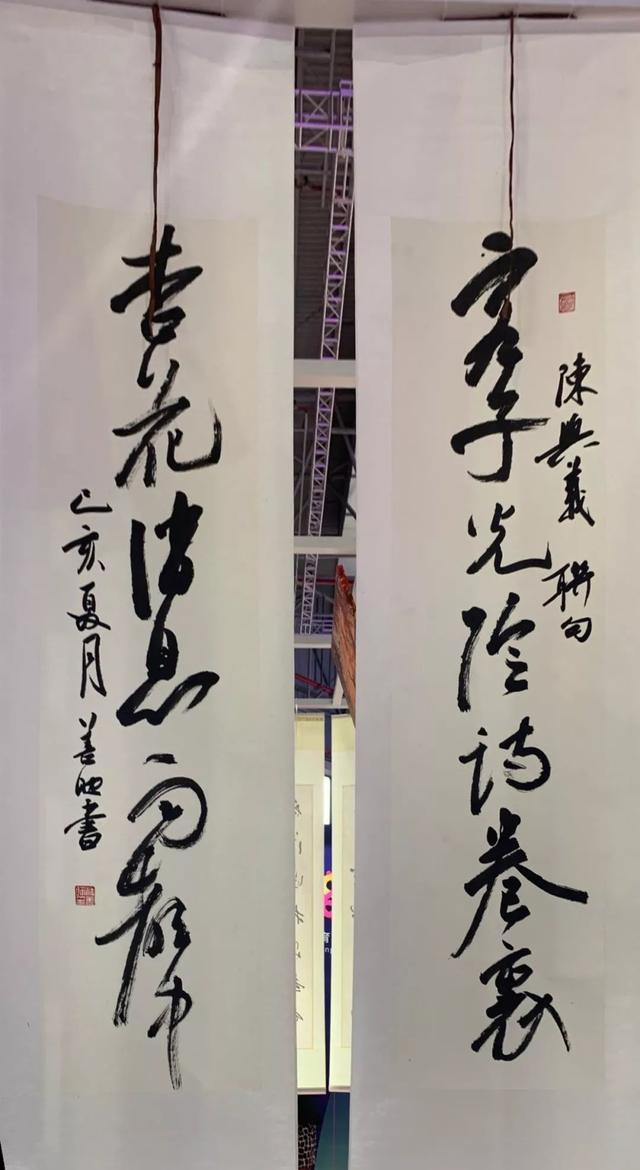 客子光陰詩卷裏
陳與義 聯句
杏花消息雨聲中
己亥夏月 善書